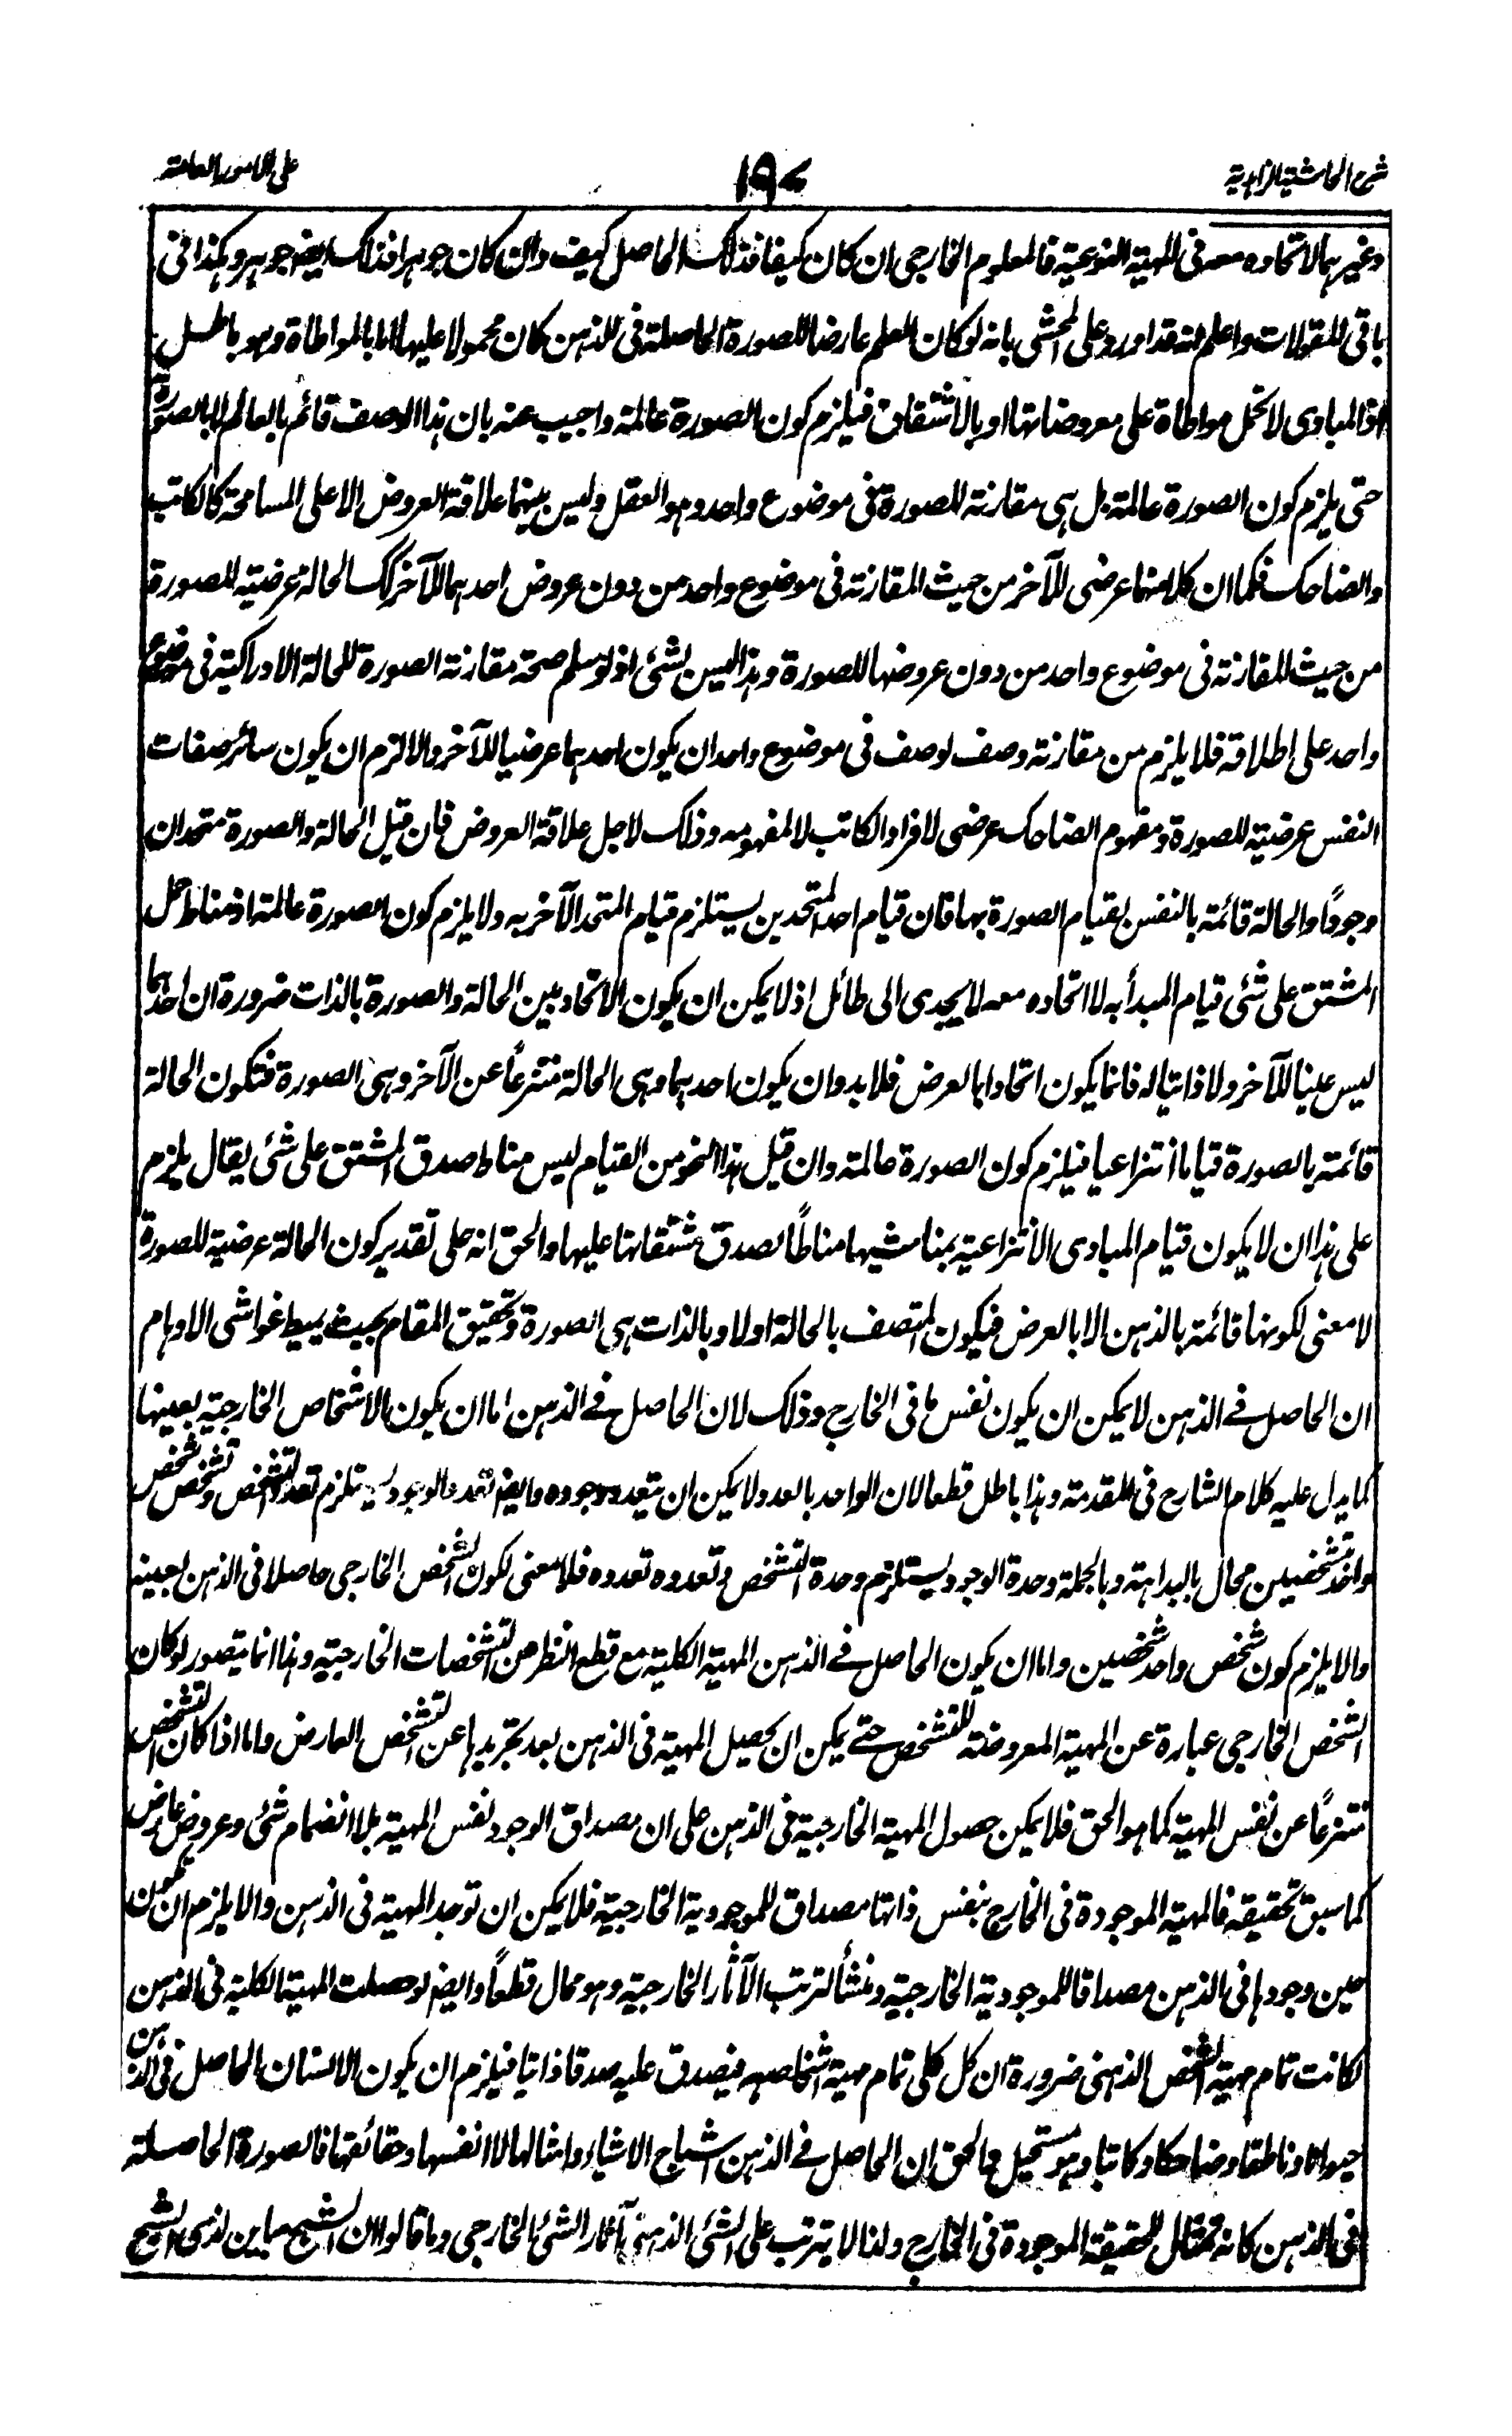 شرح الحاشية الزاهدية
١٩٧
على الامور العامة
وغيرهما لاتحاده معه فى المهية النوعية فالمعلوم الخارجى ان كان كيفا فذلك الحاصل كيف وان كان جوهرا فذاك ايضا جوهر وهكذا فى
باقى المقولات واعلم انه قد اورد على المحشى بانه لو كان العلم عارضا للصورة الحاصلة فى الذهن كان محمولا عليها اما بالمواطاة وهو باطل
اذ المبادى لا تحمل مواطاة على معروضاتها او بالاشتقاق فيلزم كون الصورة عالمة واجيب عنه بان هذا الوصف قائم بالعالم لا بالصورة
حتى يلزم كون الصورة عالمة بل هى مقارنة للصورة فى موضوع واحد وهو العقل وليس بينهما علاقة العروض الا على المسامحة كالكاتب
والضاحك فكما ان كلا منهما عرضى للآخر من حيث المقارنة فى موضوع واحد من دون عروض احدهما للآخر كك الحالة عرضية للصورة
من حيث المقارنة فى موضوع واحد من دون عروضها للصورة وهذا ليس بشئ اذ لو سلم صحة مقارنة الصورة للحالة الادراكية فى موضوع
واحد على اطلاقه فلا يلزم من مقارنة وصف لوصف فى موضوع واحد ان يكون احدهما عرضيا للآخر والا لزم ان يكون سائر صفات
النفس عرضية للصورة ومفهوم الضاحك عرضى لافراد الكاتب لا لمفهومه وذلك لاجل علاقة العروض فان قيل الحالة والصورة متحدان
وجودًا والحالة قائمة بالنفس بقيام الصورة بها فان قيام احد المتحدين يستلزم قيام المتحد الآخر به ولا يلزم كون الصورة عالمة اذ مناط حمل
المشتق على شئ قيام المبدأ به لا اتحاده معه لا يجدى الى طائل اذ لا يمكن ان يكون الاتحاد بين الحالة والصورة بالذات ضرورة ان احدهما
ليس عينا للآخر ولا ذاتيا له فانما يكون اتحادا بالعرض فلا بد وان يكون احدهما وهى الحالة منتزعًا عن الآخر وهى الصورة فتكون الحالة
قائمة بالصورة قياما انتزاعيا فيلزم كون الصورة عالمة وان قيل هذا النحو من القيام ليس مناط صدق المشتق على شئ يقال يلزم
على هذا ان لا يكون قيام المبادى الانتزاعية بمناشيها مناطًا لصدق مشتقاتها عليها والحق انه على تقدير كون الحالة عرضية للصورة
لا معنى لكونها قائمة بالذهن الا بالعرض فيكون المتصف بالحالة اولا وبالذات هى الصورة وتحقيق المقام بحيث يميط غواشى الاوهام
ان الحاصل فى الذهن لا يمكن ان يكون نفس ما فى الخارج وذلك لان الحاصل فى الذهن اما ان يكون الاشخاص الخارجية بعينها
كما يدل عليه كلام الشارح فى المقدمة وهذا باطل قطعا لان الواحد بالعدد لا يمكن ان يتعدد وجوده وايضا تعدد الوجود يستلزم تعدد التشخص وتشخص شخص
واحد بتشخصين محال بالبداهة وبالجملة وحدة الوجود يستلزم وحدة التشخص وتعدده تعدده فلا معنى لكون الشخص الخارجى حاصلا فى الذهن بعينه
والا يلزم كون شخص واحد شخصين واما ان يكون الحاصل فى الذهن المهية الكلية مع قطع النظر عن التشخصات الخارجية وهذا انما يتصور لو كان
الشخص الخارجى عبارة عن المهية المعروضة للتشخص حتى يمكن ان يحصل المهية فى الذهن بعد تجريدها عن التشخص العارض واما اذا كان التشخص
منتزعًا عن نفس المهية كما هو الحق فلا يمكن حصول المهية الخارجية فى الذهن على ان مصداق الوجود نفس المهية بلا انضمام شئ وعروض عارض
كما سبق تحقيقه فالمهية الموجودة فى الخارج بنفس ذاتها مصداق للموجودية الخارجية فلا يمكن ان توجد المهية فى الذهن والا يلزم ان تكون
حين وجودها فى الذهن مصداقا للموجودية الخارجية ومنشأ لترتب الآثار الخارجية وهو محال قطعًا وايضا لو حصلت المهية الكلية فى الذهن
لكانت تمام مهية الشخص الذهنى ضرورة ان كل كلى تمام مهية اشخاصه فيصدق عليه صدقا ذاتيا فيلزم ان يكون الانسان الحاصل فى الذهن
حيوانا وناطقا وضاحكا وكاتبا وهو مستحيل والحق ان الحاصل فى الذهن اشباح الاشياء وامثالها لا انفسها وحقائقها فالصورة الحاصلة
فى الذهن كانه تمثال للحقيقة الموجودة فى الخارج ولذا لا يترتب على الشئ الذهنى آثار الشئ الخارجى وما قالوا ان الشبح مباين لذى الشبح